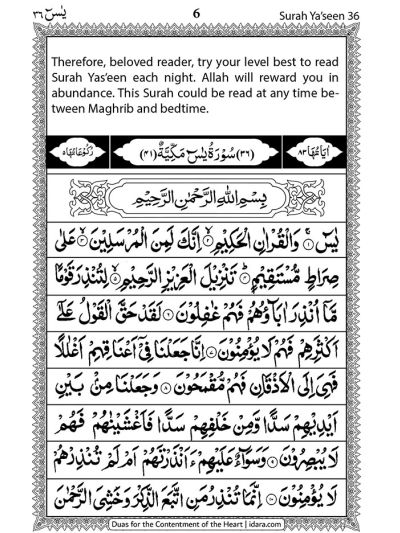 يٰسٓ ٣٦
6
Surah Ya'seen 36
Therefore, beloved reader, try your level best to read
Surah Yas'een each night. Allah will reward you in
abundance. This Surah could be read at any time be-
tween Maghrib and bedtime.
اٰيَاتُهَا ٨٣ (٣٦) سُوْرَةُ يٰسٓ مَكِّيَّةٌ (٤١) رُكُوْعَاتُهَا ٥
بِسْمِ اللّٰهِ الرَّحْمٰنِ الرَّحِيْمِ
يٰسٓ ۝١ وَالْقُرْاٰنِ الْحَكِيْمِ ۝٢ اِنَّكَ لَمِنَ الْمُرْسَلِيْنَ ۝٣ عَلٰى
صِرَاطٍ مُّسْتَقِيْمٍ ۝٤ تَنْزِيْلَ الْعَزِيْزِ الرَّحِيْمِ ۝٥ لِتُنْذِرَ قَوْمًا
مَّاۤ اُنْذِرَ اٰبَآؤُهُمْ فَهُمْ غٰفِلُوْنَ ۝٦ لَقَدْ حَقَّ الْقَوْلُ عَلٰۤى
اَكْثَرِهِمْ فَهُمْ لَا يُؤْمِنُوْنَ ۝٧ اِنَّا جَعَلْنَا فِيْۤ اَعْنَاقِهِمْ اَغْلٰلًا
فَهِىَ اِلَى الْاَذْقَانِ فَهُمْ مُّقْمَحُوْنَ ۝٨ وَجَعَلْنَا مِنْۢ بَيْنِ
اَيْدِيْهِمْ سَدًّا وَّمِنْ خَلْفِهِمْ سَدًّا فَاَغْشَيْنٰهُمْ فَهُمْ
لَا يُبْصِرُوْنَ ۝٩ وَسَوَآءٌ عَلَيْهِمْ ءَاَنْذَرْتَهُمْ اَمْ لَمْ تُنْذِرْهُمْ
لَا يُؤْمِنُوْنَ ۝١٠ اِنَّمَا تُنْذِرُ مَنِ اتَّبَعَ الذِّكْرَ وَخَشِىَ الرَّحْمٰنَ
Duas for the Contentment of the Heart | idara.com